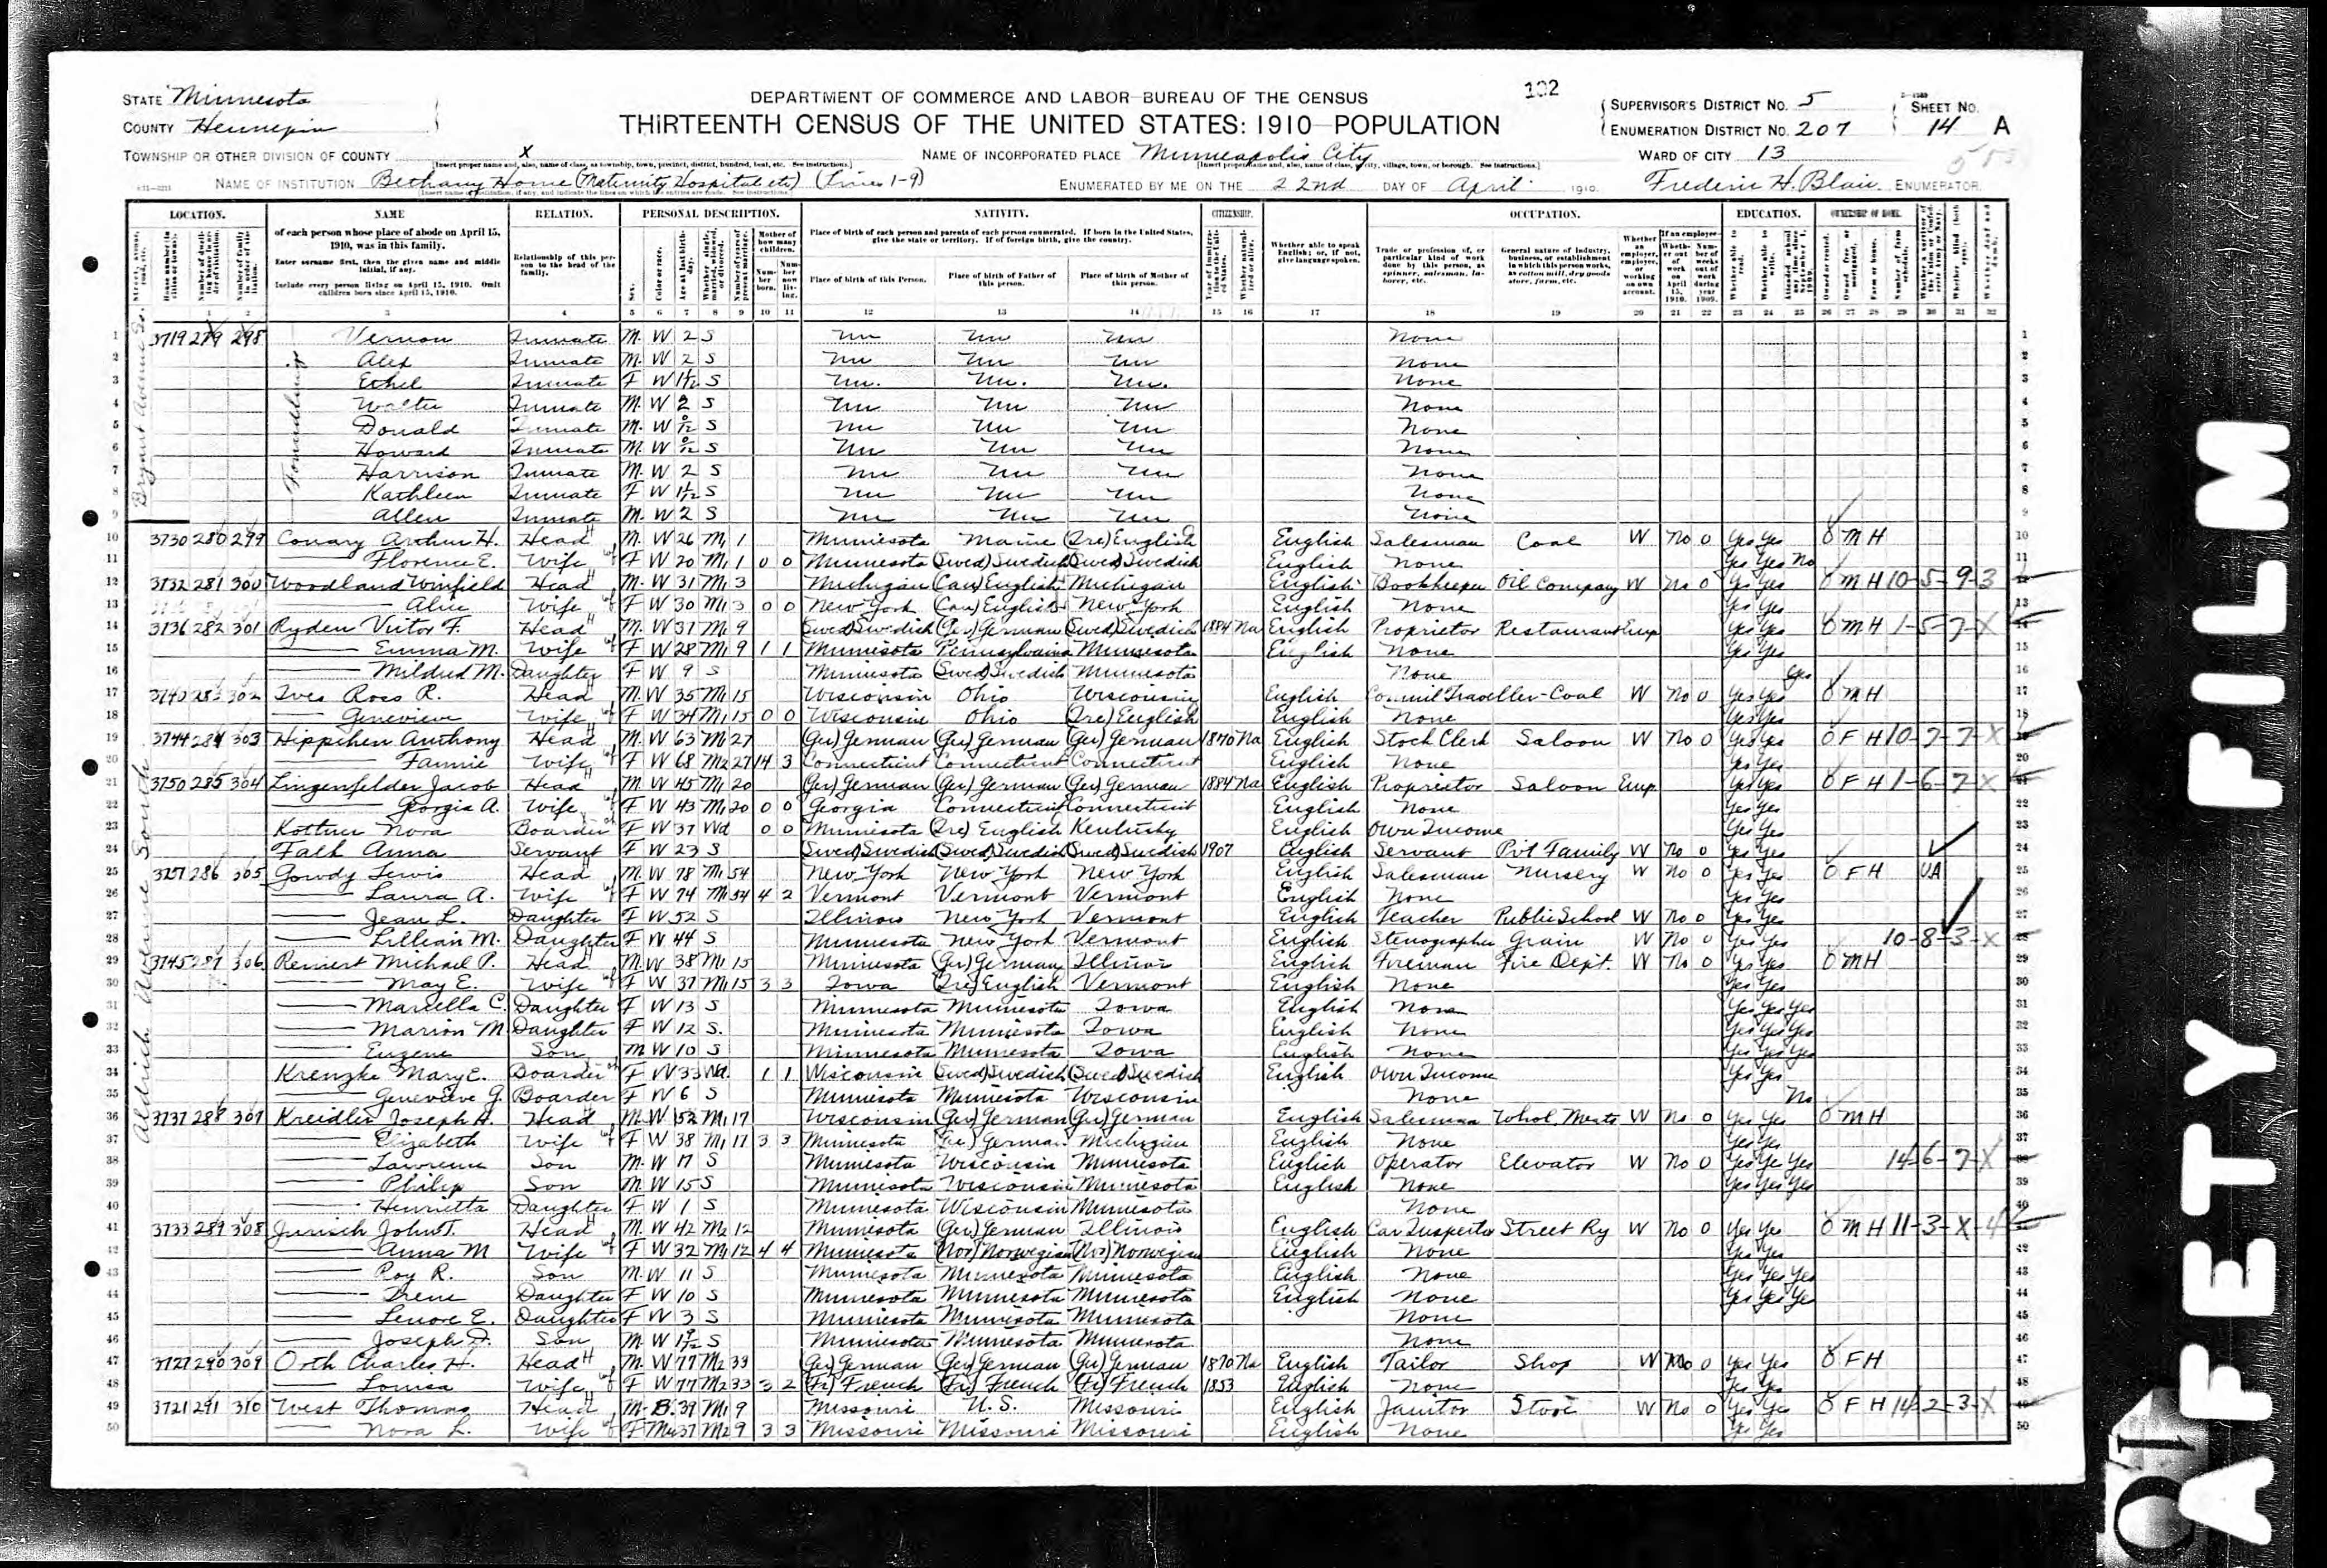 132
STATE Minnesota
COUNTY Hennepin
DEPARTMENT OF COMMERCE AND LABOR—BUREAU OF THE CENSUS
THIRTEENTH CENSUS OF THE UNITED STATES: 1910—POPULATION
SUPERVISOR'S DISTRICT NO. 5
ENUMERATION DISTRICT NO. 207
SHEET NO. 14 A
TOWNSHIP OR OTHER DIVISION OF COUNTY X
NAME OF INCORPORATED PLACE Minneapolis City
WARD OF CITY 13
NAME OF INSTITUTION Bethany Home (Maternity Hospital etc) (Lines 1-9)
ENUMERATED BY ME ON THE 22nd DAY OF April 1910. Frederic H. Blair ENUMERATOR.
LOCATION. NAME RELATION. PERSONAL DESCRIPTION. NATIVITY. CITIZENSHIP. OCCUPATION. EDUCATION. OWNERSHIP OF HOME.
of each person whose place of abode on April 15, 1910, was in this family.
Enter surname first, then the given name and middle initial, if any.
Include every person living on April 15, 1910. Omit children born since April 15, 1910.
Relationship of this person to the head of the family.
Place of birth of each person and parents of each person enumerated. If born in the United States, give the state or territory. If of foreign birth, give the country.
Place of birth of this Person. Place of birth of Father of this person. Place of birth of Mother of this person.
Whether able to speak English; or, if not, give language spoken.
Bryant Avenue So.
Foundlings
1 3719 279 298 Vernon Inmate M W 2 S Un Un Un None
2 Alex Inmate M W 2 S Un Un Un None
3 Ethel Inmate F W S Un. Un. Un. None
4 Walter Inmate M W 2 S Un Un Un None
5 Donald Inmate M W S Un Un Un None
6 Howard Inmate M W S Un Un Un None
7 Harrison Inmate M W 2 S Un Un Un None
8 Kathleen Inmate F W S Un Un Un None
9 Allen Inmate M W 2 S Un Un Un None
Aldrich Avenue South
10 3730 280 299 Conary Arthur H. Head M W 26 M1 1 Minnesota Maine (Ire) English English Salesman Coal W No 0 Yes Yes O M H
11 Florence E. Wife F W 20 M1 1 0 0 Minnesota (Swed) Swedish (Swed) Swedish English None Yes Yes No
12 3732 281 300 Woodland Winfield Head M W 31 M1 3 Michigan (Can) English Michigan English Bookkeeper Oil Company W No 0 Yes Yes O M H 10-5-9-3
13 Alice Wife F W 30 M1 3 0 0 New York (Can) English New York English None Yes Yes
14 3736 282 301 Ryden Victor F. Head M W 37 M1 9 (Swed) Swedish (Ger) German (Swed) Swedish 1884 Na English Proprietor Restaurant Emp Yes Yes O M H 1-5-7-X
15 Emma M. Wife F W 28 M1 9 1 1 Minnesota Pennsylvania Minnesota English None Yes Yes
16 Mildred M. Daughter F W 9 S Minnesota (Swed) Swedish Minnesota None Yes
17 3740 283 302 Ives Ross R. Head M W 35 M1 15 Wisconsin Ohio Wisconsin English Comml Traveller-Coal W No 0 Yes Yes O M H
18 Genevieve Wife F W 34 M1 15 0 0 Wisconsin Ohio (Ire) English English None Yes Yes
19 3744 284 303 Hippchen Anthony Head M W 63 M1 27 (Ger) German (Ger) German (Ger) German 1870 Na English Stock Clerk Saloon W No 0 Yes Yes O F H 10-7-7-X
20 Fannie Wife F W 68 M2 27 14 3 Connecticut Connecticut Connecticut English None Yes Yes
21 3750 285 304 Lingenfelder Jacob Head M W 45 M1 20 (Ger) German (Ger) German (Ger) German 1884 Na English Proprietor Saloon Emp Yes Yes O F H 1-6-7-X
22 Georgia A. Wife F W 43 M1 20 0 0 Georgia Connecticut Connecticut English None Yes Yes
23 Kottner Nora Boarder F W 37 Wd 0 0 Minnesota (Ire) English Kentucky English Own Income Yes Yes
24 Falk Anna Servant F W 23 S (Swed) Swedish (Swed) Swedish (Swed) Swedish 1907 English Servant Pvt Family W No 0 Yes Yes
25 3757 286 305 Gowdy Lewis Head M W 78 M1 54 New York New York New York English Salesman Nursery W No 0 Yes Yes O F H UA
26 Laura A. Wife F W 74 M1 54 4 2 Vermont Vermont Vermont English None Yes Yes
27 Jean L. Daughter F W 52 S Illinois New York Vermont English Teacher Public School W No 0 Yes Yes
28 Lillian M. Daughter F W 44 S Minnesota New York Vermont English Stenographer Grain W No 0 Yes Yes 10-8-3-X
29 3745 287 306 Reinert Michael P. Head M W 38 M1 15 Minnesota (Ger) German Illinois English Fireman Fire Dept. W No 0 Yes Yes O M H
30 May E. Wife F W 37 M1 15 3 3 Iowa (Ire) English Vermont English None Yes Yes
31 Marcella C. Daughter F W 13 S Minnesota Minnesota Iowa English None Yes Yes Yes
32 Marion M. Daughter F W 12 S. Minnesota Minnesota Iowa English None Yes Yes Yes
33 Eugene Son M W 10 S Minnesota Minnesota Iowa English None Yes Yes Yes
34 Krenzke Mary E. Boarder F W 33 Wd. 1 1 Wisconsin (Swed) Swedish (Swed) Swedish English Own Income Yes Yes
35 Genevieve G. Boarder F W 6 S Minnesota Minnesota Wisconsin None No
36 3737 288 307 Kreidler Joseph A. Head M W 52 M1 17 Wisconsin (Ger) German (Ger) German English Salesman Whol Meats W No 0 Yes Yes O M H
37 Elizabeth Wife F W 38 M1 17 3 3 Minnesota (Ger) German Michigan English None Yes Yes
38 Lawrence Son M W 17 S Minnesota Wisconsin Minnesota English Operator Elevator W No 0 Yes Yes Yes 14-6-7-X
39 Philip Son M W 15 S Minnesota Wisconsin Minnesota English None Yes Yes Yes
40 Henrietta Daughter F W 1 S Minnesota Wisconsin Minnesota None
41 3733 289 308 Jurisch John T. Head M W 42 M2 12 Minnesota (Ger) German Illinois English Car Inspector Street Ry W No 0 Yes Yes O M H 11-3-X-4
42 Anna M Wife F W 32 M1 12 4 4 Minnesota (Nor) Norwegian (Nor) Norwegian English None Yes Yes
43 Roy R. Son M W 11 S Minnesota Minnesota Minnesota English None Yes Yes Yes
44 Irene Daughter F W 10 S Minnesota Minnesota Minnesota English None Yes Yes Yes
45 Lenore E. Daughter F W 3 S Minnesota Minnesota Minnesota None
46 Joseph Son M W S Minnesota Minnesota Minnesota None
47 3727 290 309 Orth Charles H. Head M W 77 M2 33 (Ger) German (Ger) German (Ger) German 1870 Na English Tailor Shop W No 0 Yes Yes O F H
48 Louisa Wife F W 77 M2 33 3 2 (Fr) French (Fr) French (Fr) French 1853 English None Yes Yes
49 3721 291 310 West Thomas Head M B 39 M1 9 Missouri U.S. Missouri English Janitor Store W No 0 Yes Yes O F H 14-2-3-X
50 Nora L. Wife F Mu 37 M2 9 3 3 Missouri Missouri Missouri English None Yes Yes
AFETY FILM